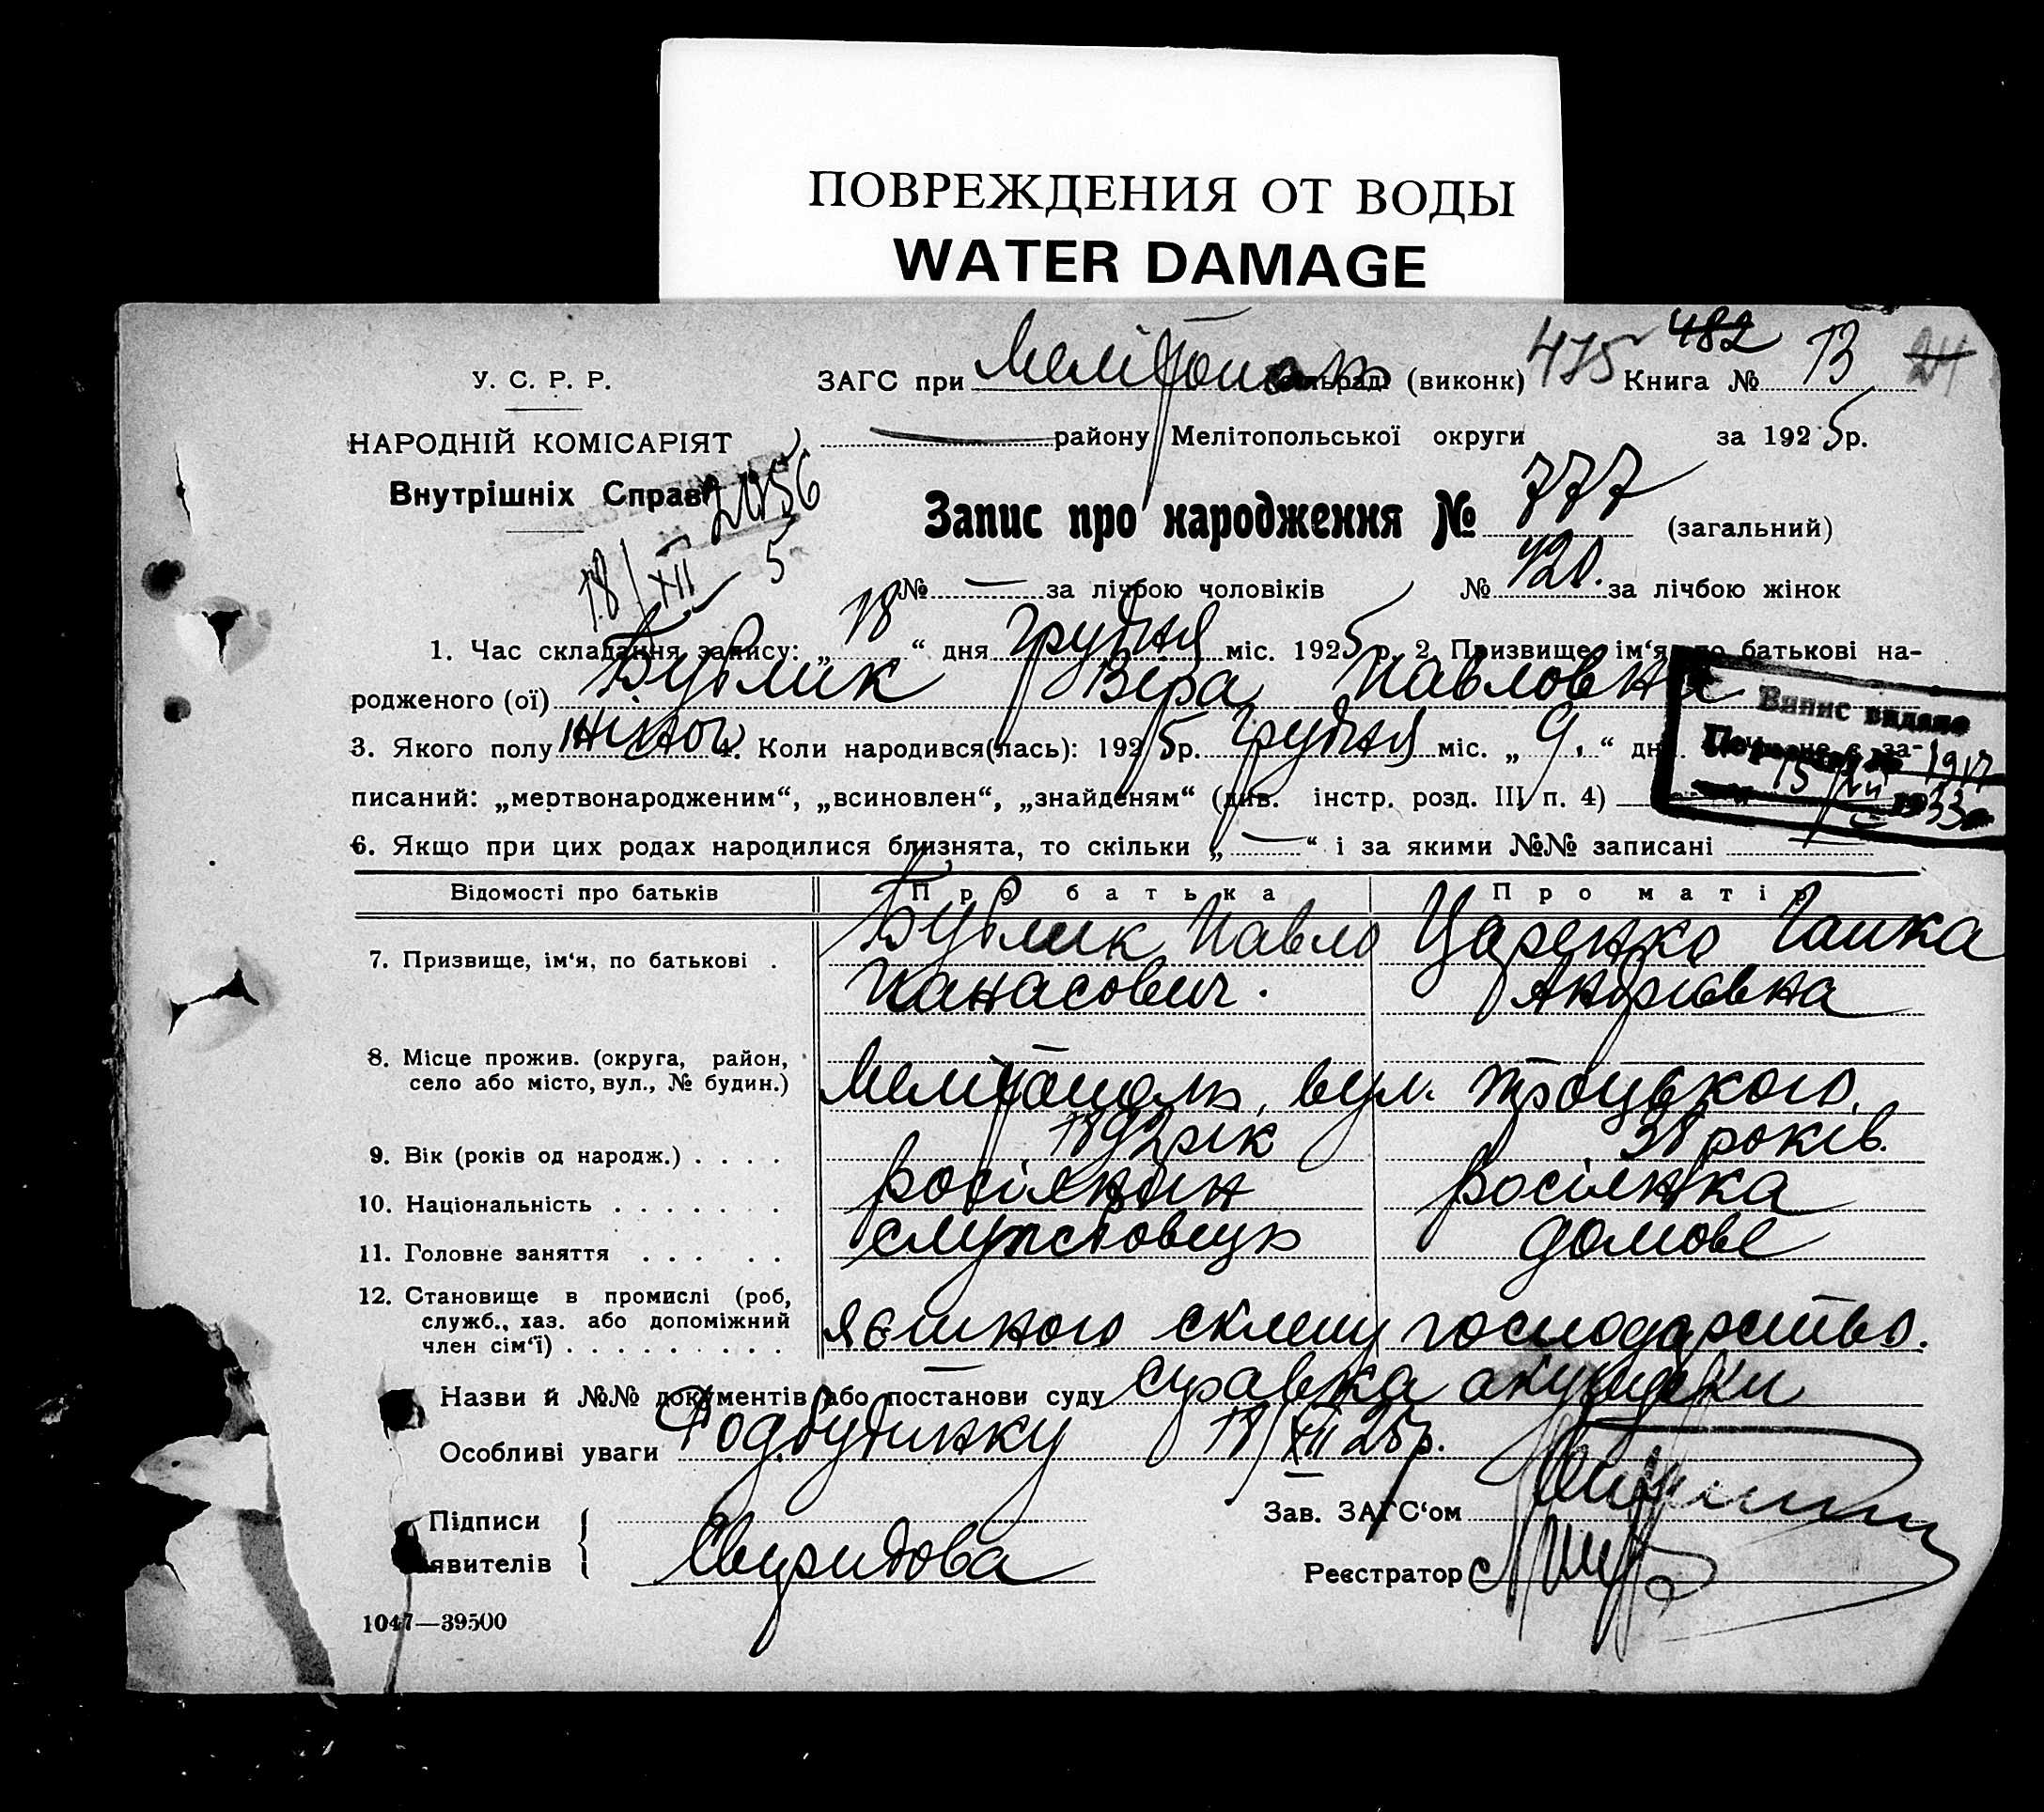 ПОВРЕЖДЕНИЯ ОТ ВОДЫ
WATER DAMAGE
475 482
У. С. Р. Р. ЗАГС при Мелітополь (виконк) Книга № 13 24
НАРОДНІЙ КОМІСАРІЯТ району Мелітопольської округи за 1925 р.
Внутрішніх Справ
18/XII 5
Запис про народження № 777 (загальний)
№ — за лічбою чоловіків № 420. за лічбою жінок
1. Час складання запису: „18“ дня грудня міс. 1925 р. 2. Призвище, ім‘я, по батькові на-
родженого (ої) Бублик Віра Павловна
3. Якого полу жіноч 4. Коли народився(лась): 1925 р. грудня міс. „9.“ дня
Випис видано
1933
писаний: „мертвонародженим“, „всиновлен“, „знайденям“ (див. інстр. розд. III, п. 4)
6. Якщо при цих родах народилися близнята, то скільки „—“ і за якими №№ записані
Відомості про батьків Про батька Про матір
7. Призвище, ім‘я, по батькові . Бублик Павло Царенко Ганка
Панасович. Андріівна
8. Місце прожив. (округа, район,
село або місто, вул., № будин.) Мелітополь, вул. Троцького,
9. Вік (років од народж.) . . . . 1892 рік 38 років.
10. Національність . . . . . . . росіянин росіянка
11. Головне заняття . . . . . службовець домове
12. Становище в промислі (роб,
служб., хаз. або допоміжний
член сім‘ї) . . . . . . . . . склепу господарство.
Назви й №№ документів або постанови суду справка акушерки
Особливі уваги Родбудинку 18/XII 25 р.
Підписи Зав. ЗАГС‘ом
явителів Свиридова Реєстратор
1047—39500